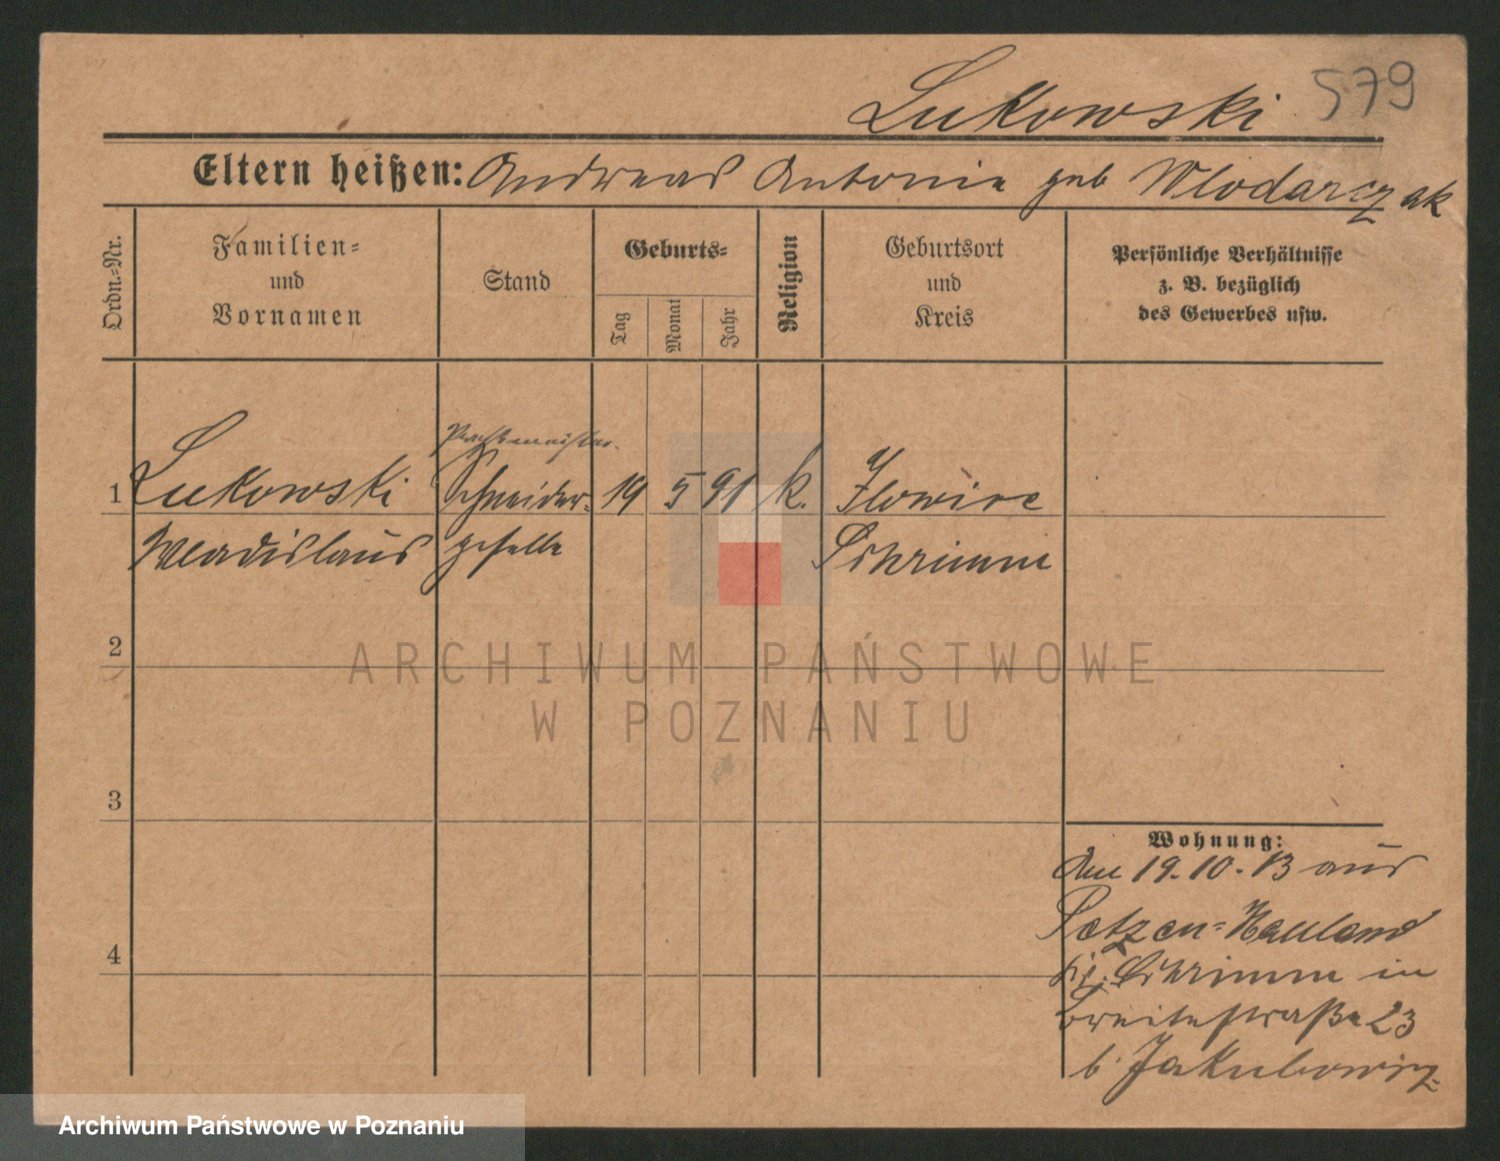 Lukowski 579
Eltern heißen: Andreas Antonie geb Wlodarczak
Ordn.=Nr.
Familien=
und
Vornamen
Stand
Geburts=
Tag
Monat
Jahr
Religion
Geburtsort
und
Kreis
Persönliche Verhältnisse
z. B. bezüglich
des Gewerbes usw.
1 Lukowski Schneider= 19 5 91 k. Ilowiec
Wladislaus geselle Schrimm
2
ARCHIWUM PAŃSTWOWE
W POZNANIU
3
Wohnung:
den 19.10.13 aus
Petzen=Hauland
Schrimm in
Breitestraße 23
b. Jakubowicz
4
Archiwum Państwowe w Poznaniu